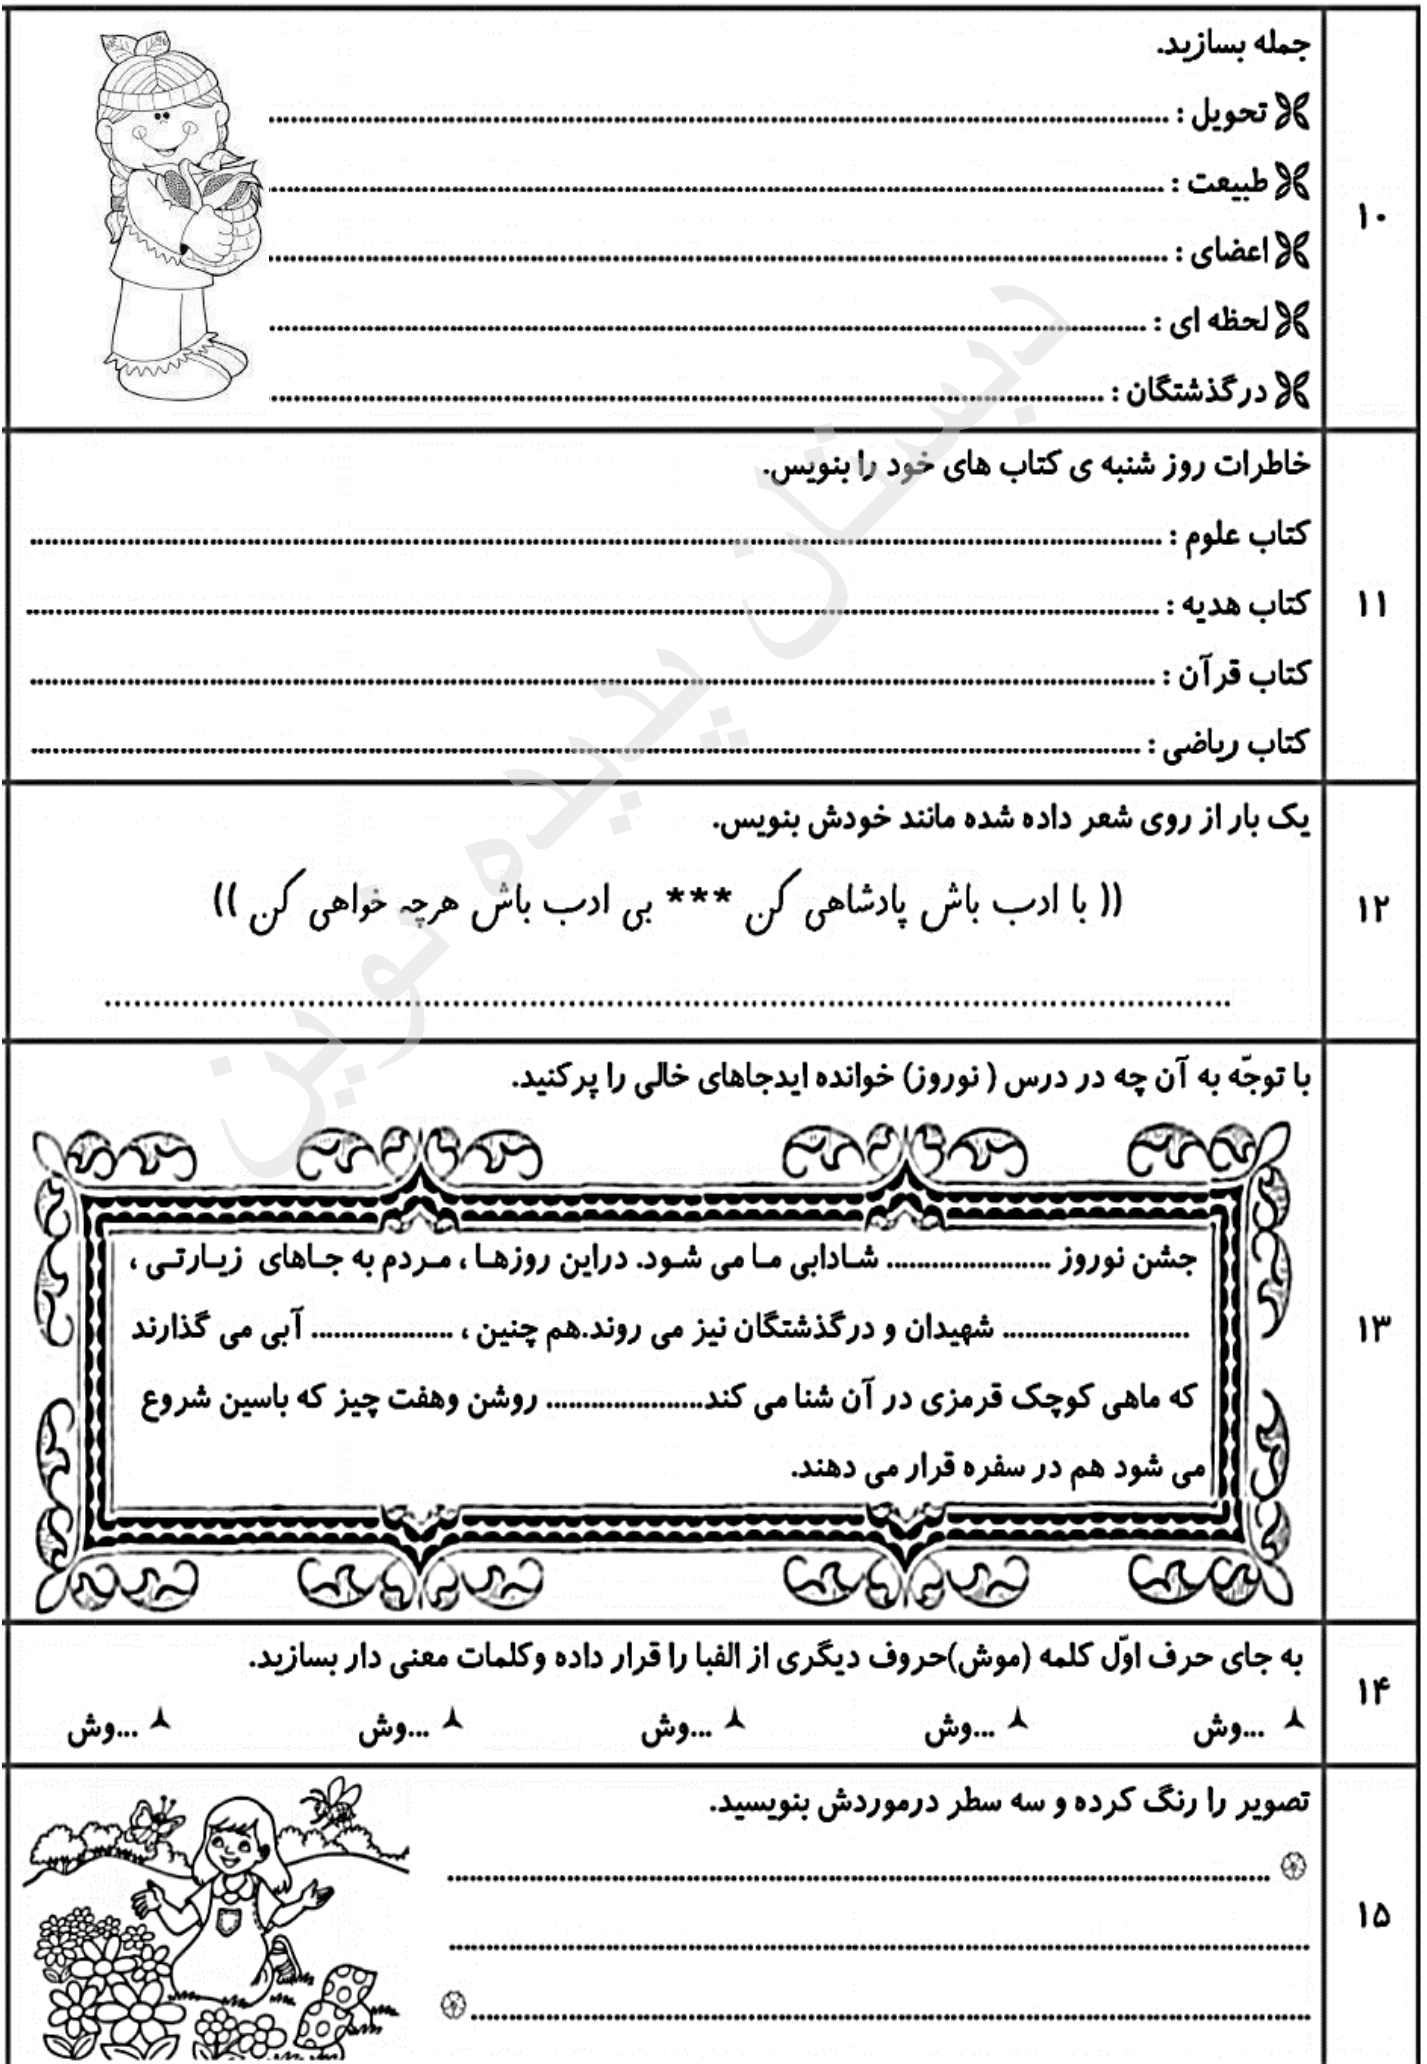 ۱۰
جمله بسازید.
تحویل : ........................................
طبیعت : ........................................
اعضای : ........................................
لحظه ای : ........................................
درگذشتگان : ........................................
۱۱
خاطرات روز شنبه ی کتاب های خود را بنویس.
کتاب علوم : ........................................
کتاب هدیه : ........................................
کتاب قرآن : ........................................
کتاب ریاضی : ........................................
۱۲
یک بار از روی شعر داده شده مانند خودش بنویس.
(( با ادب باش پادشاهی کن *** بی ادب باش هرچه خواهی کن ))
........................................
۱۳
با توجّه به آن چه در درس ( نوروز) خوانده ایدجاهای خالی را پرکنید.
جشن نوروز .................... شادابی ما می شود. دراین روزها ، مردم به جاهای زیارتی ،
.................... شهیدان و درگذشتگان نیز می روند.هم چنین ، .................... آبی می گذارند
که ماهی کوچک قرمزی در آن شنا می کند.................... روشن وهفت چیز که باسین شروع
می شود هم در سفره قرار می دهند.
۱۴
به جای حرف اوّل کلمه (موش)حروف دیگری از الفبا را قرار داده وکلمات معنی دار بسازید.
...وش ...وش ...وش ...وش ...وش
۱۵
تصویر را رنگ کرده و سه سطر درموردش بنویسید.
........................................
........................................
........................................
دبستان پدیده نوین